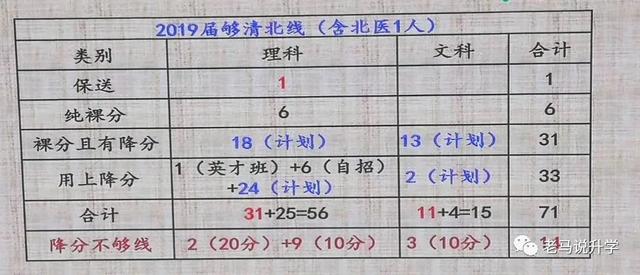 2019届够清北线（含北医1人）
类别 理科 文科 合计
保送 1 1
纯裸分 6 6
裸分且有降分 18（计划） 13（计划） 31
用上降分 1（英才班）+6（自招）
+24（计划） 2（计划） 33
合计 31+25=56 11+4=15 71
降分不够线 2（20分）+9（10分） 3（10分）
老马说升学